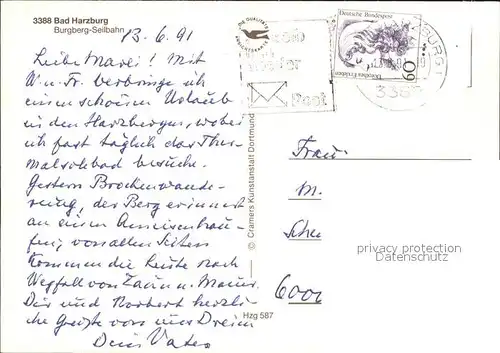 3388 Bad Harzburg
Burgberg-Seilbahn
13.6.91
Liebe Marei! Mit
W. u. Fr. verbringe ich
einen schönen Urlaub
in den Harzbergen, wobei
ich fast täglich das Ther-
malsolebad besuche.
Gestern Brockenwande-
rung, der Berg erinnert
an einen Ameisenhau-
fen, von allen Seiten
kommen die Leute nach
Wegfall von Zaun u. Mauer.
Dir und Norbert herzli-
che Grüße von uns Dreien
Dein Vater
© Cramers Kunstanstalt Dortmund
Hzg 587
Post
Deutsche Bundespost
60
BURG 1
3388
Frau
M.
privacy protection
Datenschutz
6000